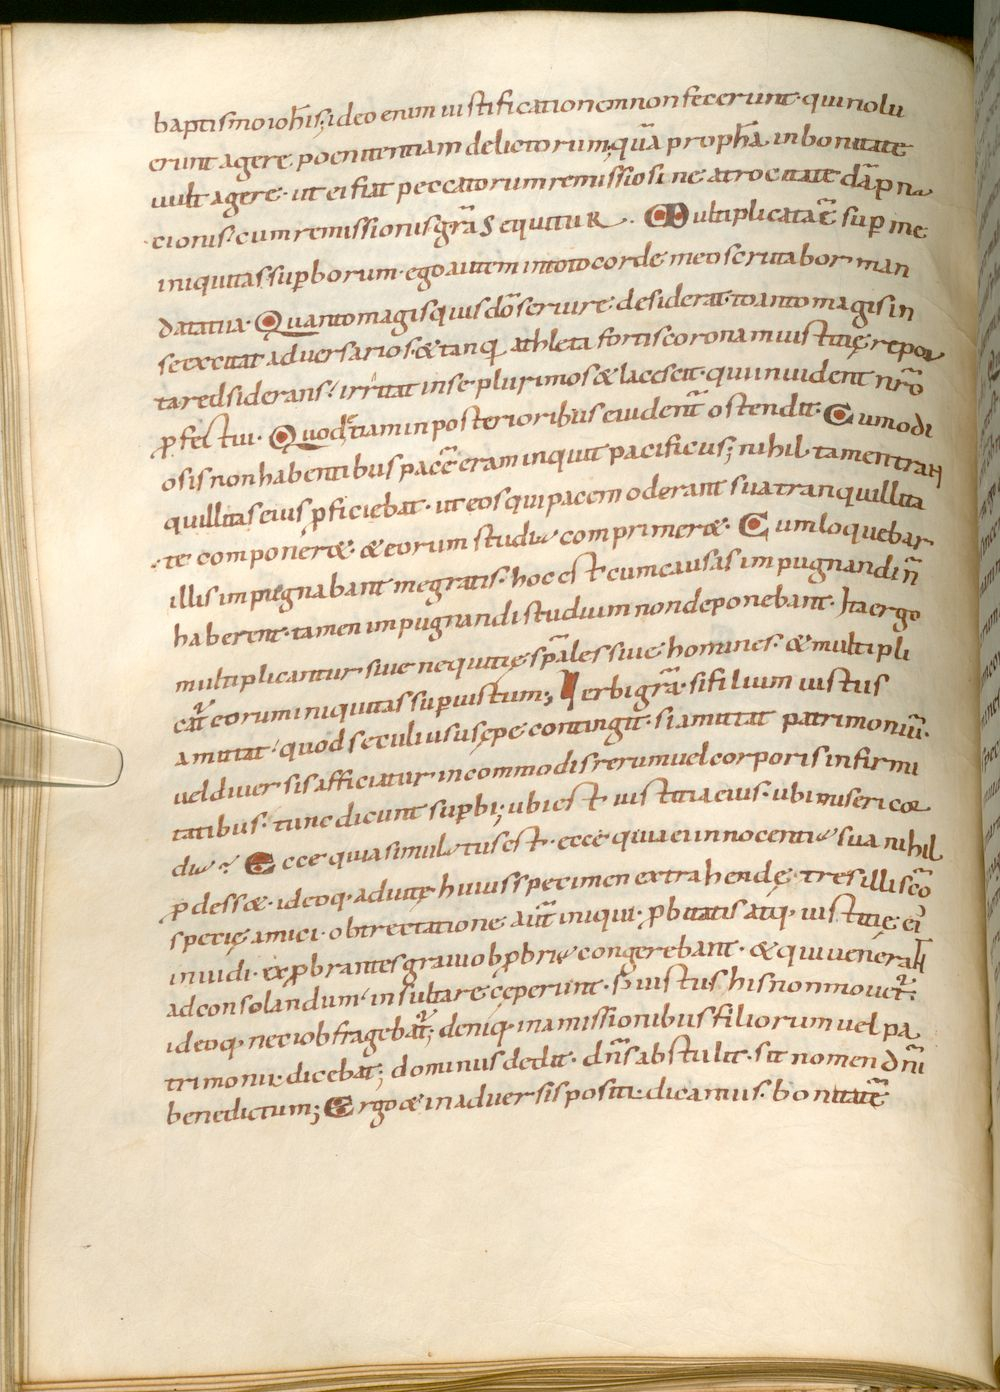 baptismo ioh̄is; ideo enim iustificationem non fecerunt· qui nolu
erunt agere poenitentiam delictorum; quā proph̄a in bonitate
uult agere· ut ei fiat peccatorum remissio sine atrocitate dāpna
cionis· cum remissionis grā SequituR· Multiplicata ē sup me
iniquitas supborum· ego autem in toto corde meo scrutabor man
data tua· Quanto magis quis dō seruire desiderat· tanto magis in
se excitat aduersarios· & tanq athleta fortis coronam iustitię repor
tare dsiderans· irritat in se plurimos & lacescit· qui inuident nr̄o
ꝓfectui· Quod &iam in posterioribus euident̄ ostendit· Cum odi
osis non habentibus pacē eram inquit pacificus; nihil tamen tran
quillitas eius ꝓficiebat· ut eos qui pacem oderant sua tranquillita
te componer&· & eorum studia comprimer&· Cum loquebar
illis impugnabant me gratis· hoc est cum causas impugnandi n̄
haberent· tamen impugnandi studium non deponebant· Ita ergo
multiplicantur siue nequitię sp̄ales siue homines· & multipli
cat̄ eorum iniquitas sup iustum; Verbi grā· si filium iustus
amittat· quod seculi usu sępe contingit· si amittat patrimoniū·
uel diuersis afficiatur incommodis rerum uel corporis infirmi
tatibus· tunc dicunt supbi; ubi est iustitia eius· ubi misericor
dia? Ecce quia simulatus est· ecce quia ei innocentia sua nihil
ꝓdess&· ideoq· ad uitę huius specimen extrahendę· tres illi sc̄o
specię amici· obtrectatione aut̄ iniqui· ꝓbitatis atq· iustitię ei
inuidi· exꝓbrantes graui obꝓbria congerebant· & qui uenerant
ad consolandum· insultare cęperunt· S; iustus his non mouet̄·
ideoq· nec iob fragebat̄; deniq· in amissionibus filiorum uel pa
trimonii· dicebat; dominus dedit· dn̄s abstulit· sit nomen dn̄i
benedictum; Ergo & in aduersis positi· dicamus· bonitatē